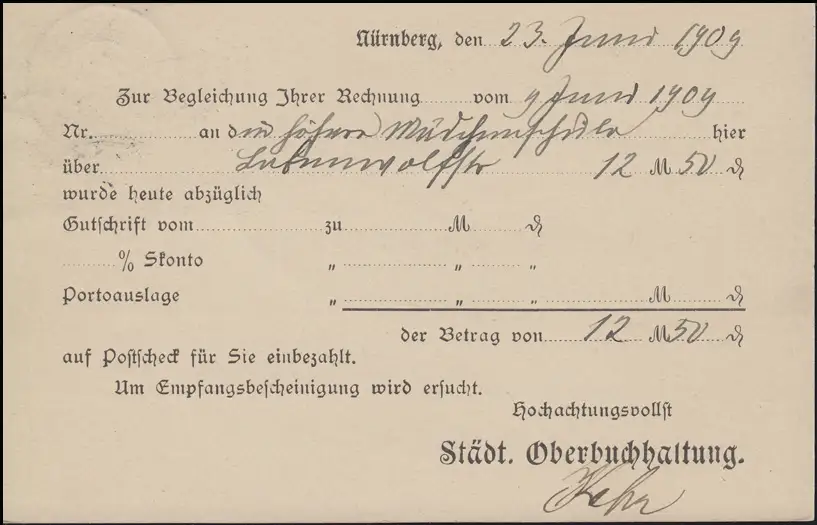 Nürnberg, den 23. Juni 1909
Zur Begleichung Ihrer Rechnung vom 9 Juni 1909
Nr. an die höhere Mädchenschule hier
über Labenwolfstr 12 M 50 ₰
wurde heute abzüglich
Gutschrift vom zu M ₰
% Skonto " " "
Portoauslage " " " M ₰
der Betrag von 12 M 50 ₰
auf Postscheck für Sie einbezahlt.
Um Empfangsbescheinigung wird ersucht.
Hochachtungsvollst
Städt. Oberbuchhaltung.